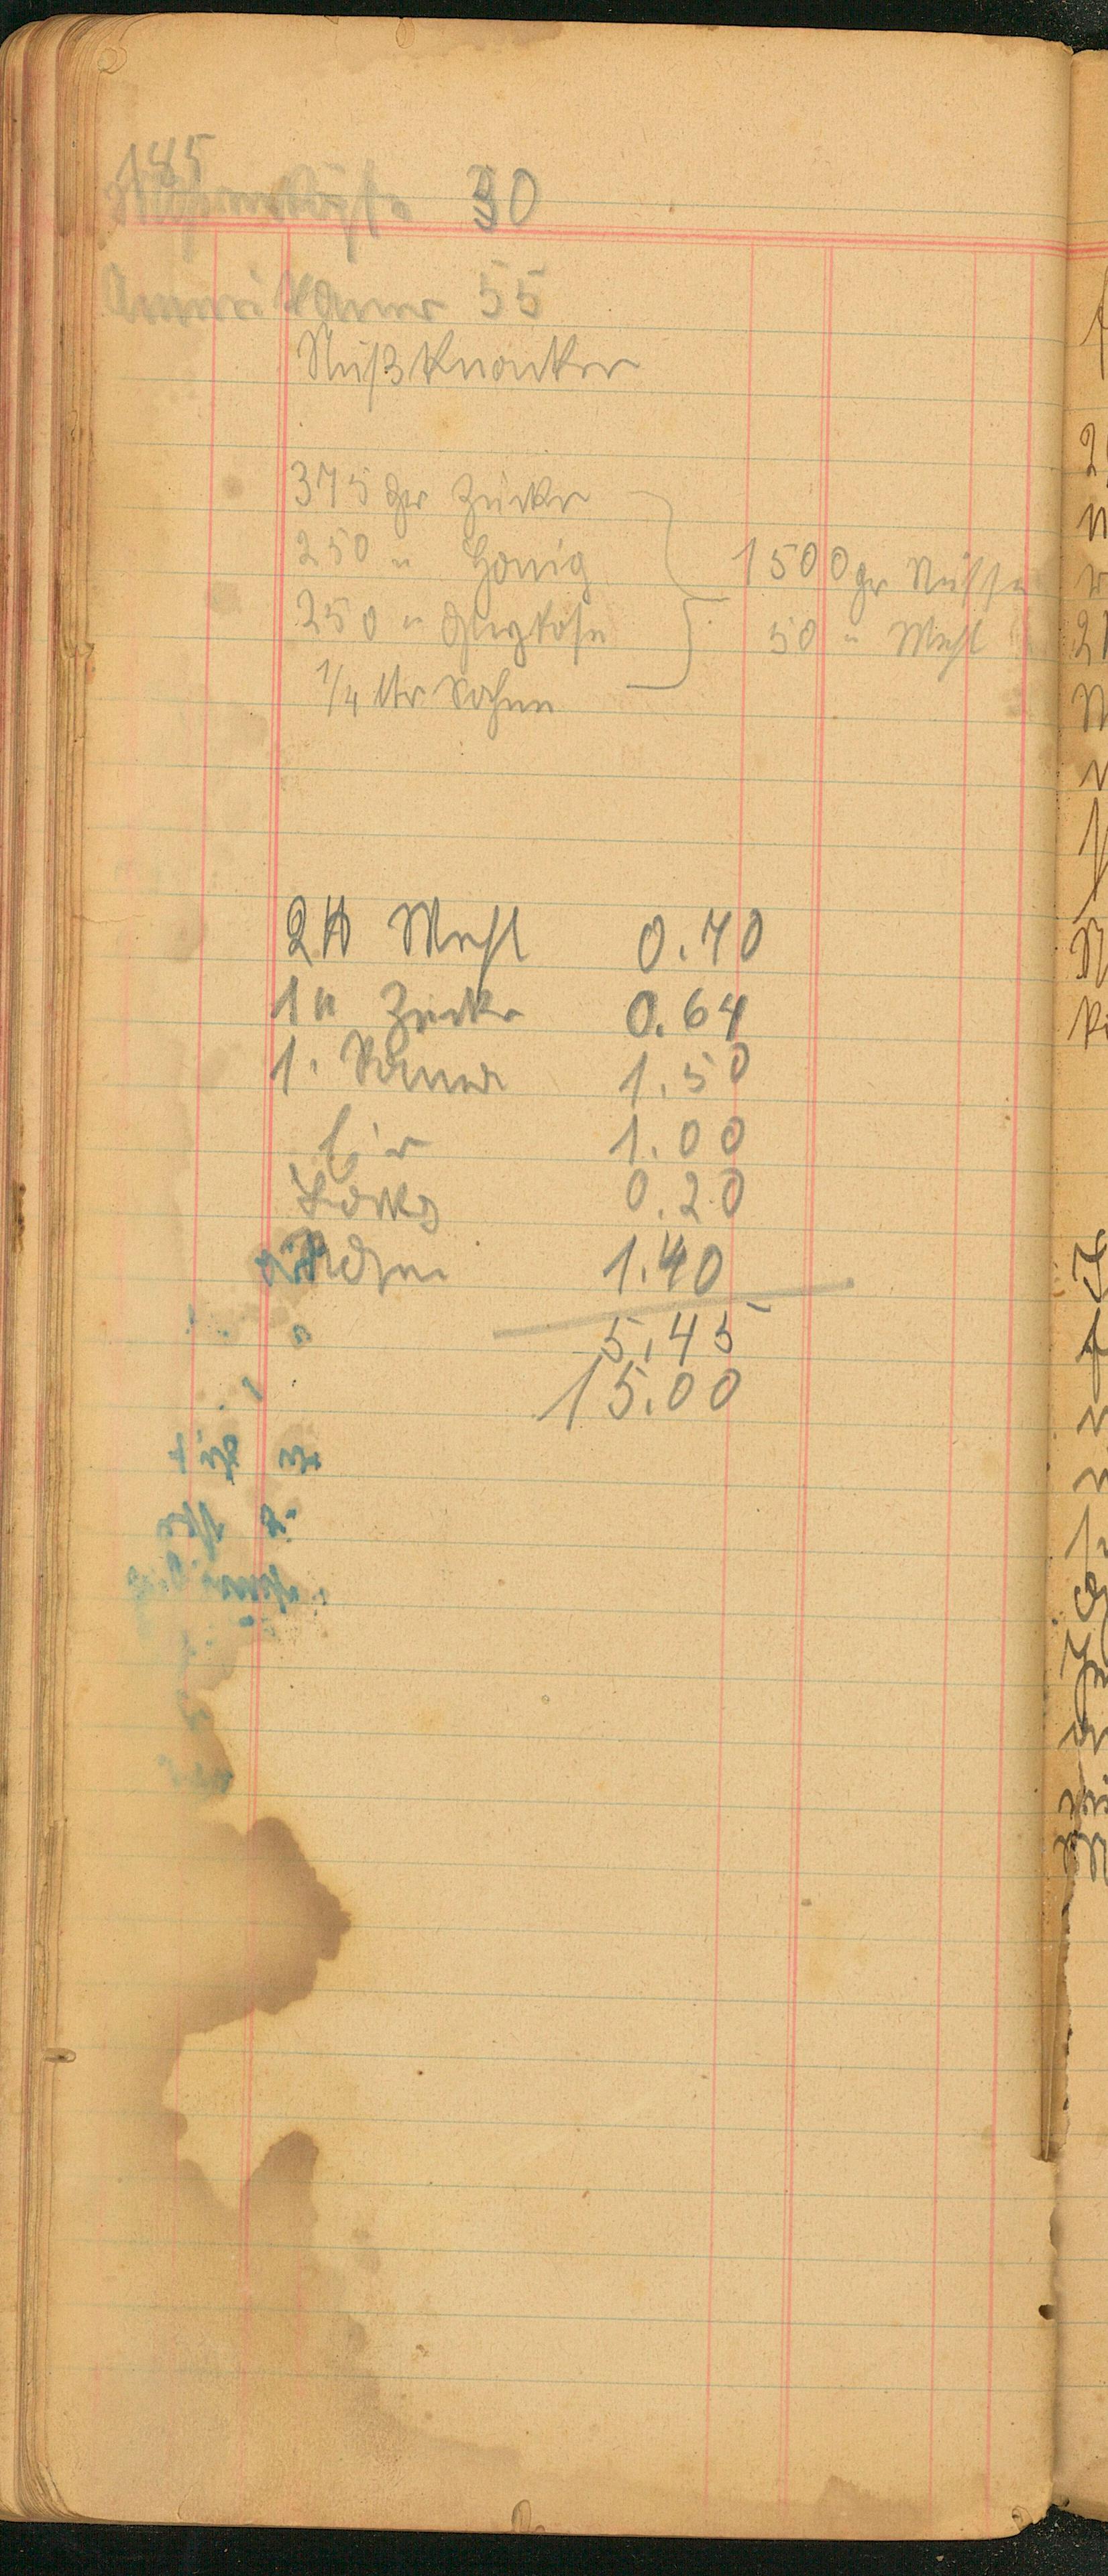 185
30
Amerikaner 55
Nußknacker
375 gr Zucker
250 " Honig
250 " Glykose
1/4 ltr Rahm
1500 gr Nüsse
50 " Mehl
2 ℔ Mehl 0.70
1 " Zucker 0.64
1. 1.50
Eier 1.00
0.20
Rahm 1.40
5,45
15.00